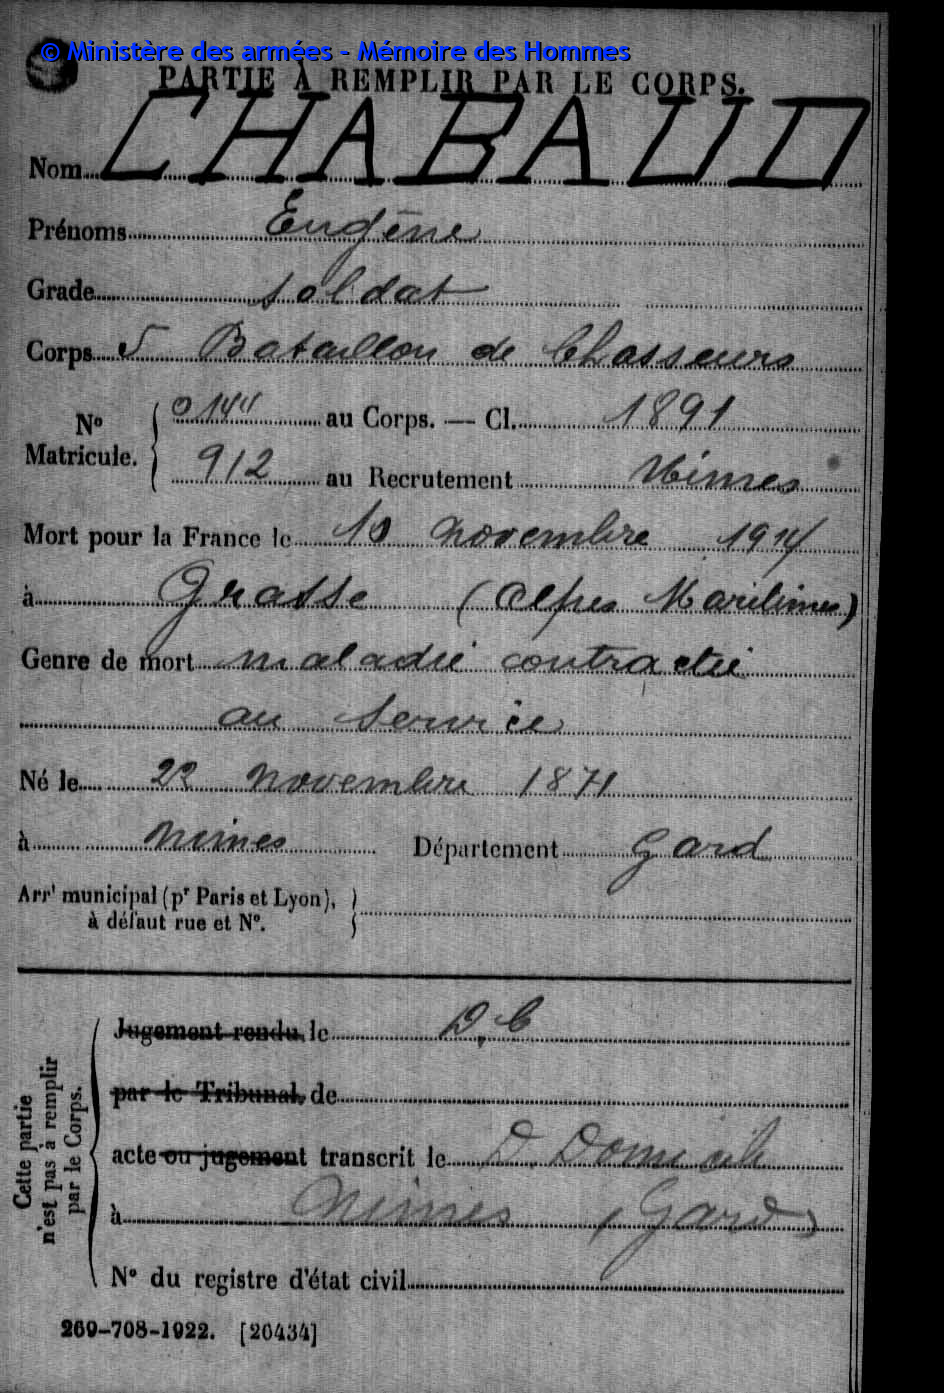 © Ministère des armées - Mémoire des Hommes
PARTIE À REMPLIR PAR LE CORPS.
Nom CHABAUD
Prénoms Eugène
Grade soldat
Corps 5 Bataillon de Chasseurs
N° Matricule. { 0144 au Corps. — Cl. 1891
912 au Recrutement Nimes
Mort pour la France le 10 novembre 1914
à Grasse (Alpes Maritimes)
Genre de mort maladie contractée
au service
Né le 22 novembre 1871
à Nimes Département Gard
Arrt municipal (pr Paris et Lyon),
à défaut rue et N°.
Cette partie n'est pas à remplir par le Corps.
Jugement rendu le D.C
par le Tribunal de
acte ou jugement transcrit le D. Domicile
à Nimes (Gard)
N° du registre d'état civil
269-708-1922. [26434]